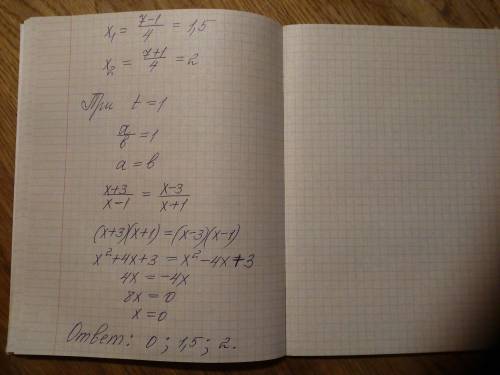 x₁ = (7-1)/4 = 1,5
x₂ = (7+1)/4 = 2
При t = 1
a/в = 1
a = в
(x+3)/(x-1) = (x-3)/(x+1)
(x+3)(x+1) = (x-3)(x-1)
x² + 4x + 3 = x² - 4x + 3
4x = -4x
8x = 0
x = 0
Ответ: 0; 1,5; 2.